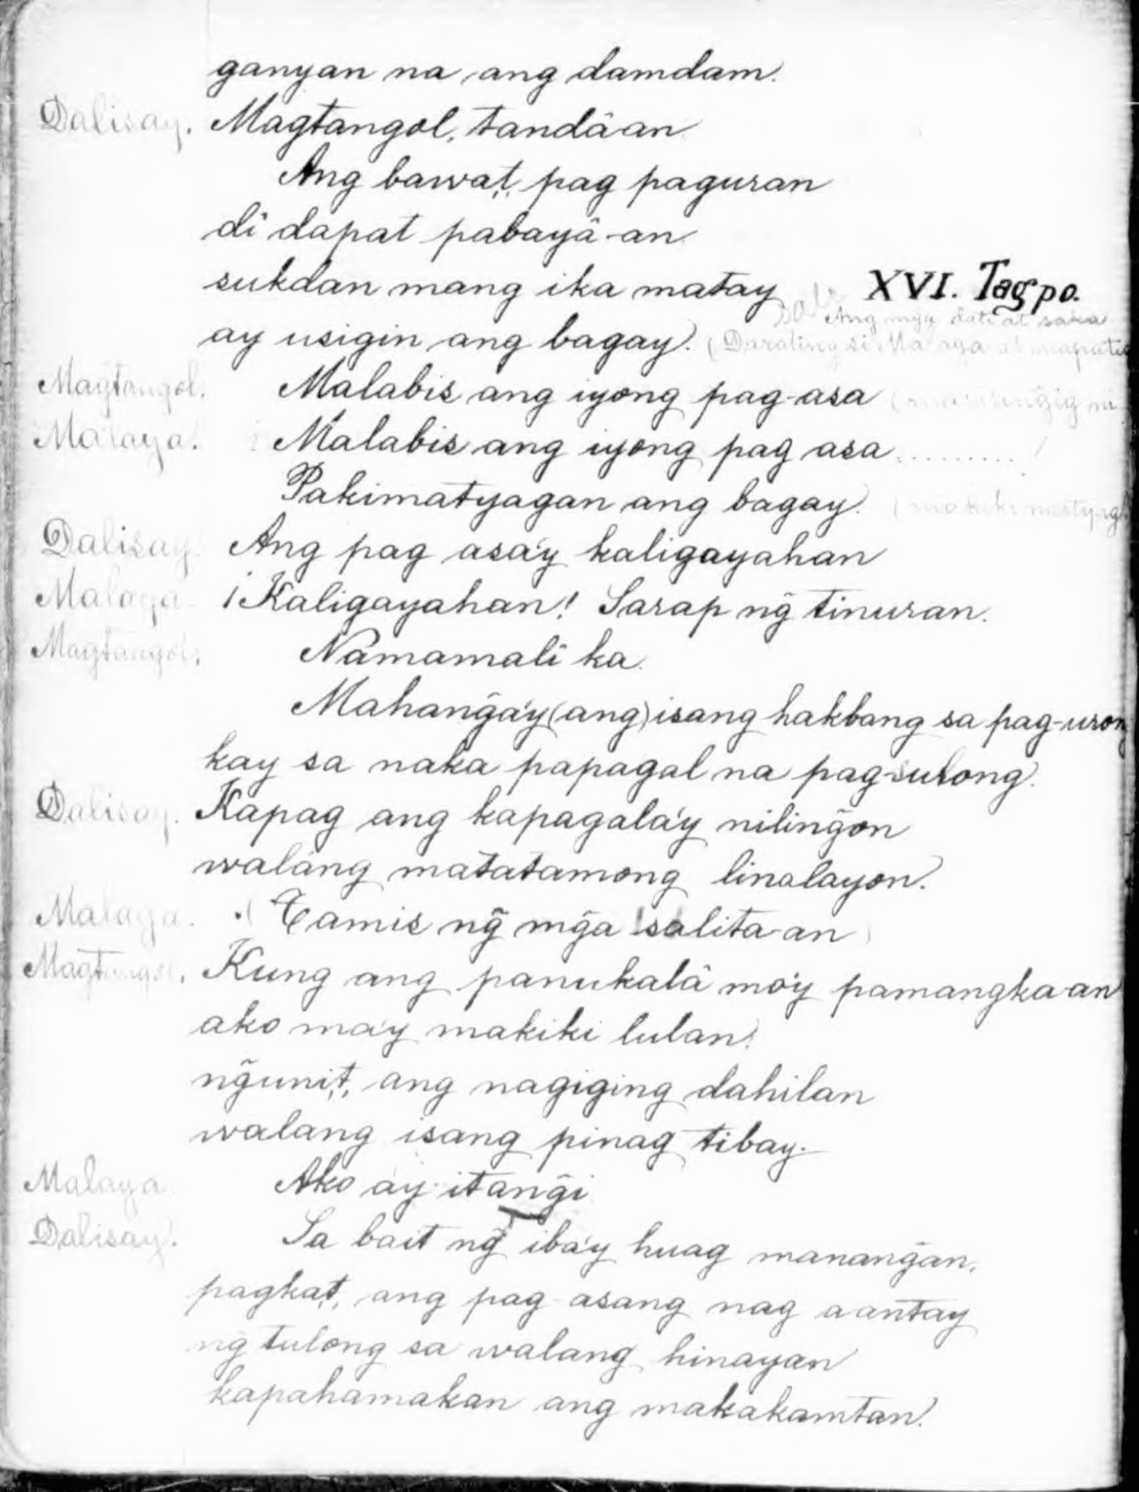 ganyan na ang damdam.
Dalisay. Magtangol, tandâan
Ang bawat, pag paguran
di dapat pabayâ-an
sukdan mang ika matay
XVI. Tagpo.
Ang mga dati at saka
ay usigin ang bagay. (Darating si Malaya at
Magtangol. Malabis ang iyong pag-asa
Malaya. Malabis ang iyong pag asa.........
Pakimatyagan ang bagay.
Dalisay. Ang pag asa'y kaligayahan
Malaya ¡Kaligayahan! Sarap ng̃ tinuran.
Magtangol. Namamali ka.
Mahang̃a'y (ang) isang hakbang sa pag-urong
kay sa naka papagal na pag-sulong.
Dalisay. Kapag ang kapagala'y niling̃on
walang matatamong linalayon.
Malaya. (Tamis ng̃ mg̃a salita-an)
Magtangol. Kung ang panukalâ mo'y pamangka-an
ako ma'y makiki lulan.
ng̃unit, ang nagiging dahilan
walang isang pinag tibay.
Malaya Ako ay itang̃i
Dalisay. Sa bait ng̃ iba'y huag manang̃an,
pagkat, ang pag-asang nag aantay
ng̃ tulong sa walang hinayan
kapahamakan ang makakamtan.